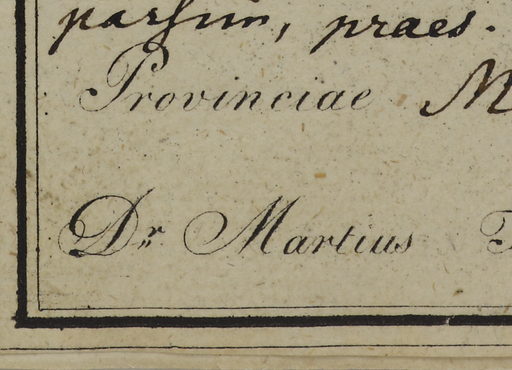 parsim, praes.
Provinciae M
Dr. Martius